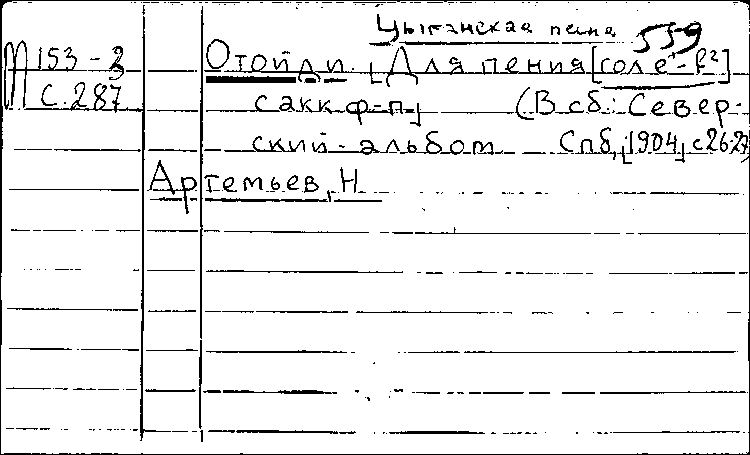 Цыганская песня 559
М 153-3 Отойди. [Для пения [соле'-f²]
с. 287 с акк ф-п] (В сб.: Север-
ский-альбом Спб, [1904] с 26-27)
Артемьев, Н